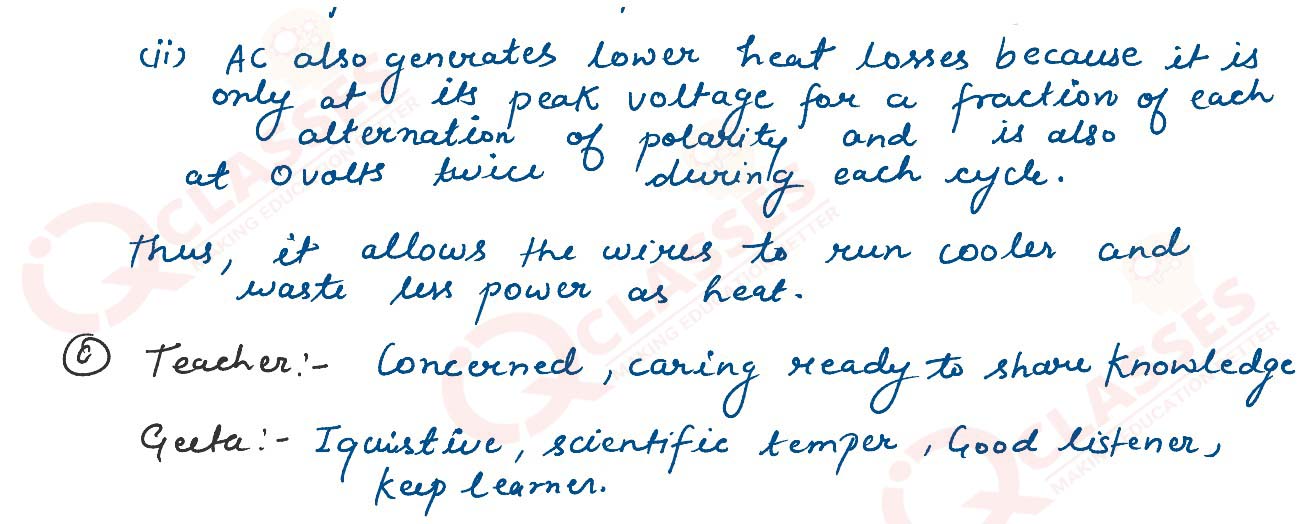 (ii) AC also generates lower heat losses because it is
only at its peak voltage for a fraction of each
alternation of polarity and is also
at 0 volts twice during each cycle.
Thus, it allows the wires to run cooler and
waste less power as heat.
Teacher:- Concerned, caring ready to share knowledge
Geeta:- Iquistive, scientific temper, Good listener,
keep learner.
CLASSES
MAKING EDUCATION BETTER
CLASSES
MAKING EDUCATION BETTER
CLASSES
MAKING EDUCATION BETTER